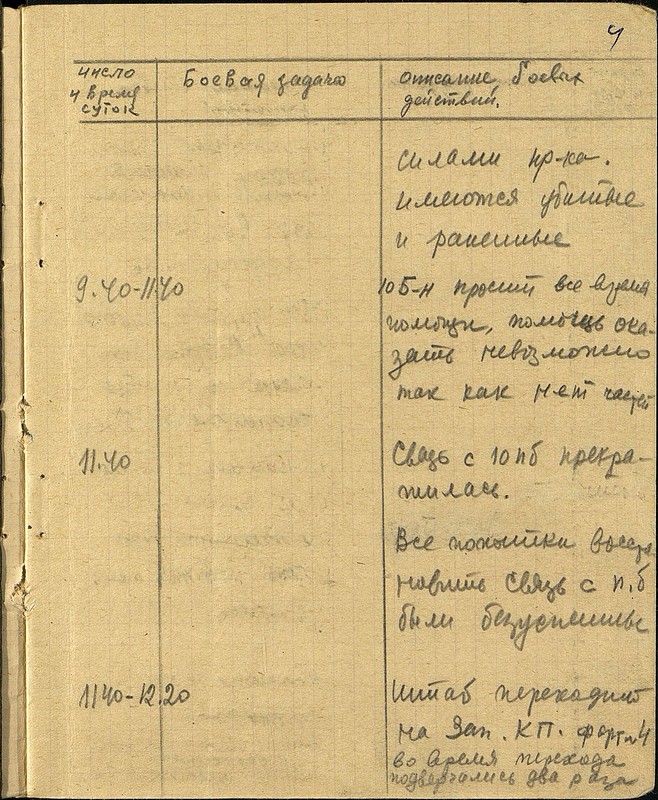 4
число
и время
суток
Боевая задача
описание боевых
действий.
силами пр-ка.
имеются убитые
и раненные
9.40-11.40
10 Б-н просит все время
помощи, помощь ока-
зать невозможно
так как нет частей
11.40
Связь с 10 пб прекра-
тилась.
Все попытки восста
новить связь с п.б
были безуспешны
1140-12.20
Штаб переходит
на Зап. КП. форт 4
во время перехода
подвергались два раза